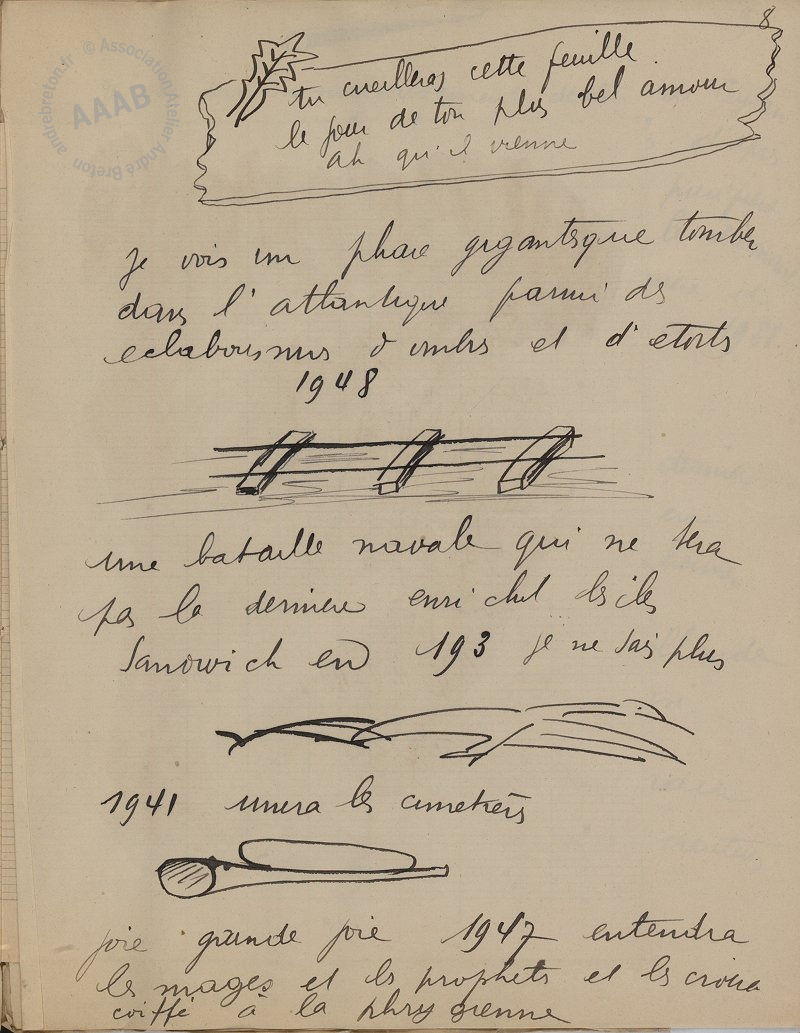 8
tu cueilleras cette feuille
le jour de ton plus bel amour
ah qu'il vienne
je vois un phare gigantesque tomber
dans l'attantique parmi des
eclaboussures d'ombres et d'
1948
une bataille navale qui ne sera
pas la derniere enrichit les iles
Sandwich en 193 je ne sais plus
1941 unira les cimetiers
joie grande joie 1947 entendra
les mages et les prophets et les croira
coiffé à la phrygienne
© Association Atelier André Breton
andrebreton.fr
AAAB